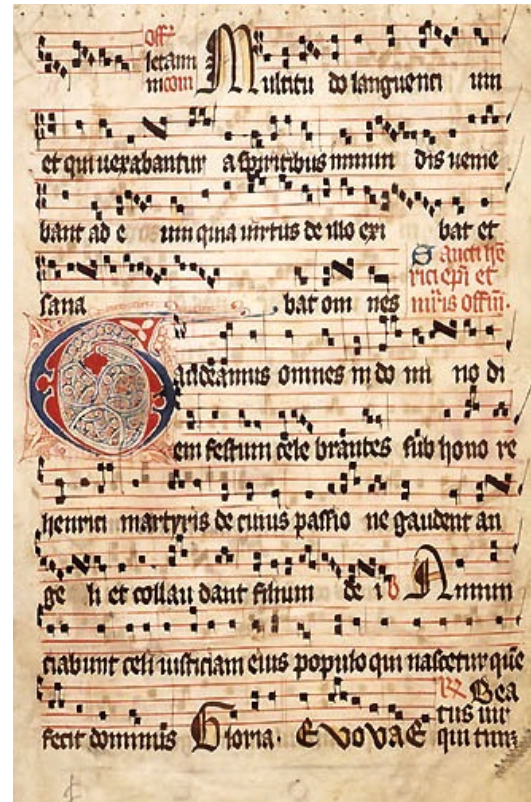 Off͛
letami
ni com Multitu do languenti um
et qui uexabantur a spiritibus inmun dis uenie
bant ad e um quia uirtus de illo exi bat et
sana bat om nes
Sancti hē
rici ep̄i et
mr̄is offm̄.
Gaudeamus omnes in do mi no di
em festum cele brantes sub hono re
henrici martyris de cuius passio ne gaudent an
ge li et collau dant filium de i V Annun
ciabunt celi iusticiam eius populo qui nascetur quē
fecit dominus Gloria. EVOVAE
Bea
tus uir
qui tim͛